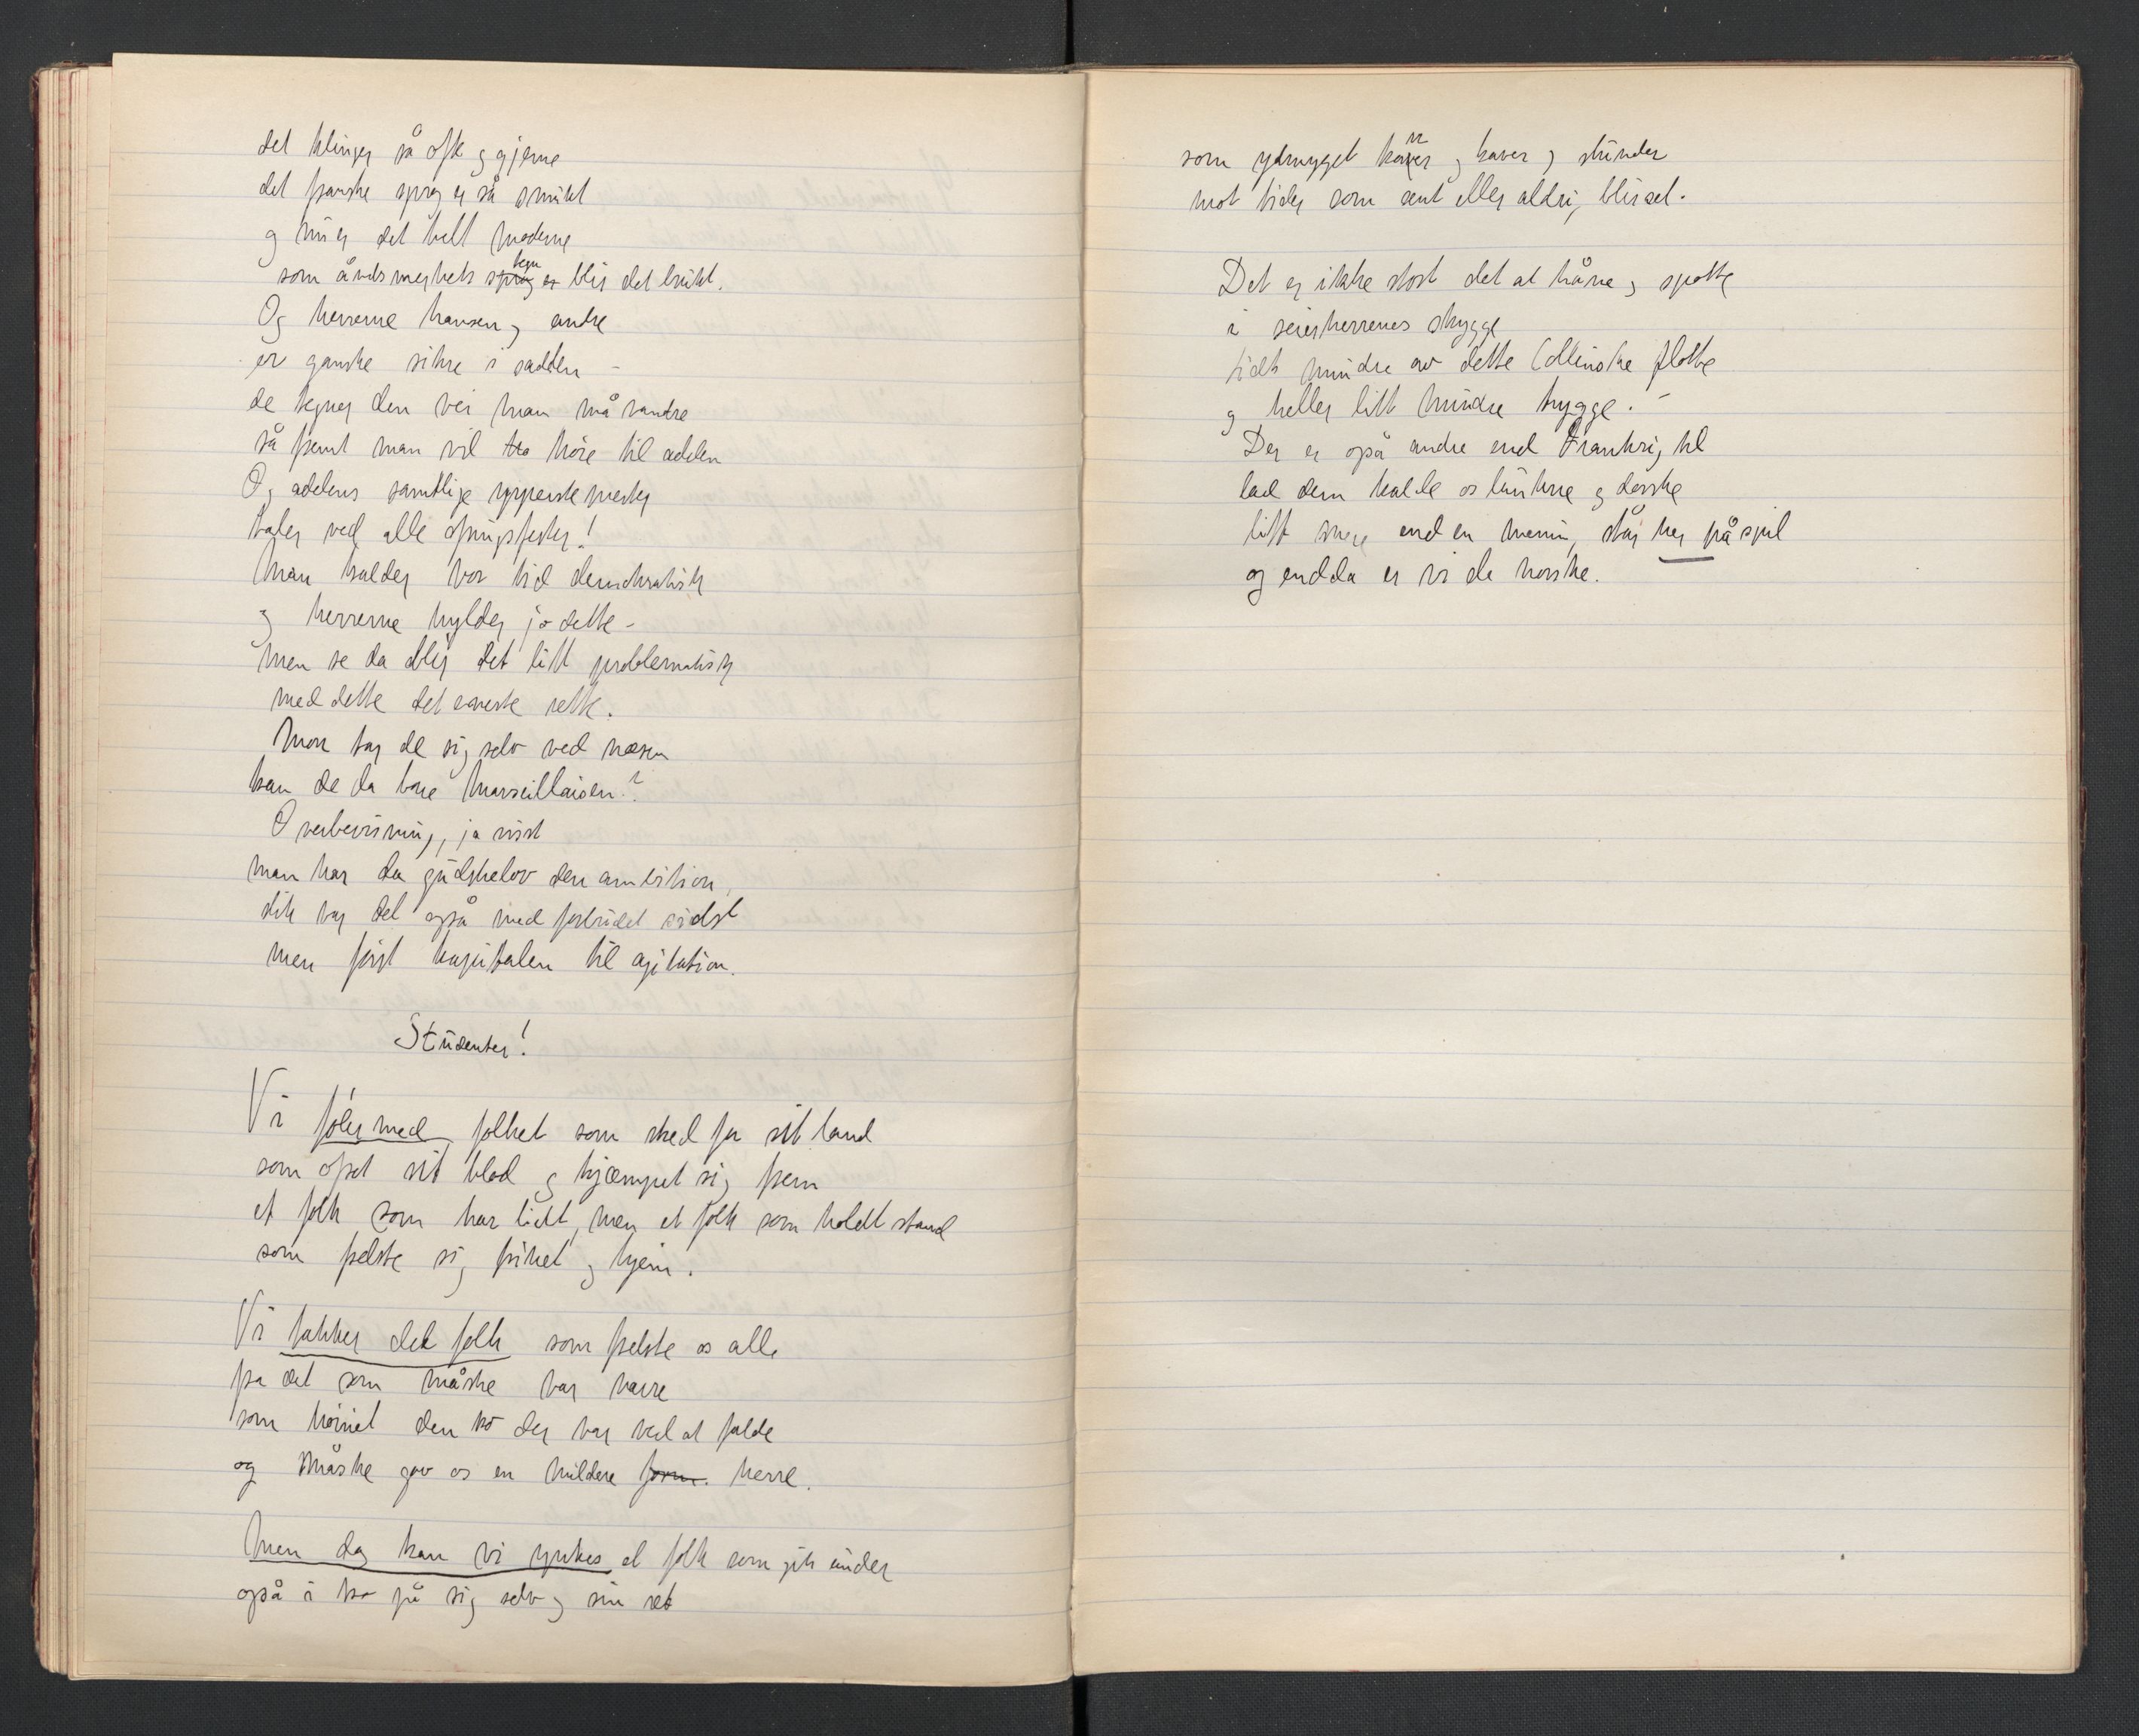 det klinger så ofte og gjerne
det franske sprog er så smukt
og nu er det helt moderne
som åndsmerkets sprog er tegn blir det brukt.
Og herrerne hansen og andre
er ganske sikre i sadden –
de tegner den vei man må vandre
så fremt man vil høre til adelen
Og adelens samtlige ypperste prester
taler ved alle festers!
Man kalder vor tid demokratisk
og herrerne hylder jo dette –
Men se da blir det litt problematisk
med dette det eneste rette.
Mon tar de sig selv ved næsen
kan de da bare Marseillaisen?
Overbevisning, ja visst
man har da gudskelov den ambition,
slik var det også med forbudet sidst
men først kapitalen til agitation.
Studenter!
Vi føler med folket som stred for sit land
som ofret sit blod og kjæmpet sig frem
et folk som har lidt, men et folk som holdt stand
som frelste sig frihet og hjem.
Vi takker det folk som frelste os alle
fra det som måske var værre
som hævnet den tro der var ved at falde
og måske gav os en mildere form. herre.
Men dog kan vi ynkes et folk som gik under
også i tro på sig selv og sin ret
som ydmyget kaver og haver og stunder
mot tider som sent eller aldri, blir set.
Det er ikke stort det at håne og spotte
i seierherrenes skygge
litt mindre av dette Collinske flotte
og heller litt mindre trygge. –
Der er også andre end Frankrig til
lad dem kalde os lunkne og dorske
litt mere end en mening står her på spil
og endda er vi de norske.